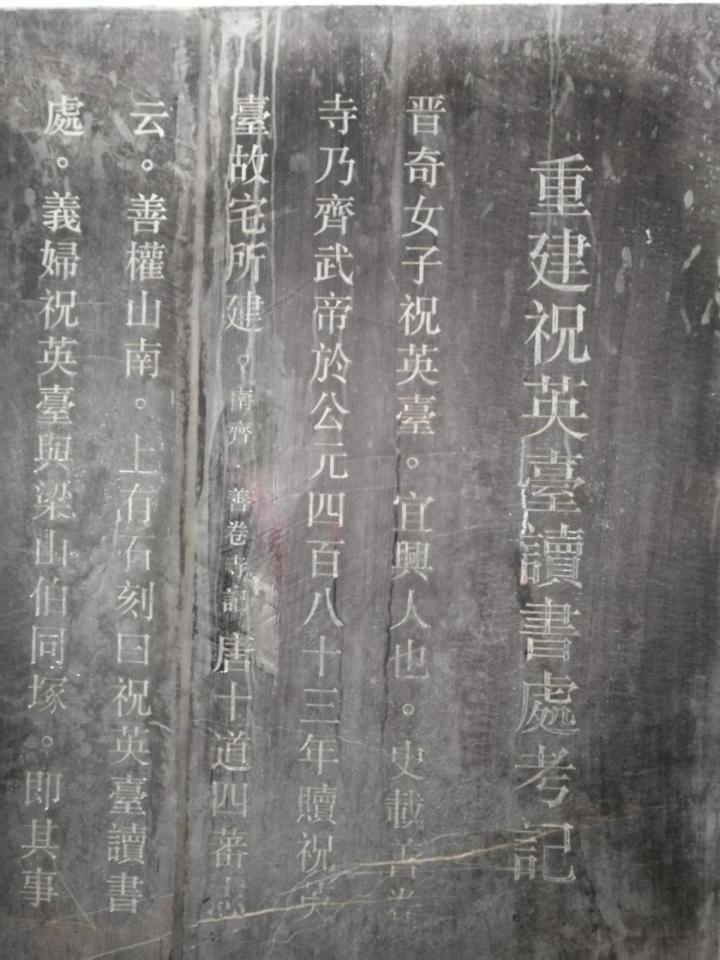 重建祝英臺讀書處考記
晋奇女子祝英臺。宜興人也。史載善卷
寺乃齊武帝於公元四百八十三年贖祝英
臺故宅所建。南齊·善卷寺記唐十道四蕃志
云。善權山南。上有石刻曰祝英臺讀書
處。義婦祝英臺與梁山伯同塚。即其事